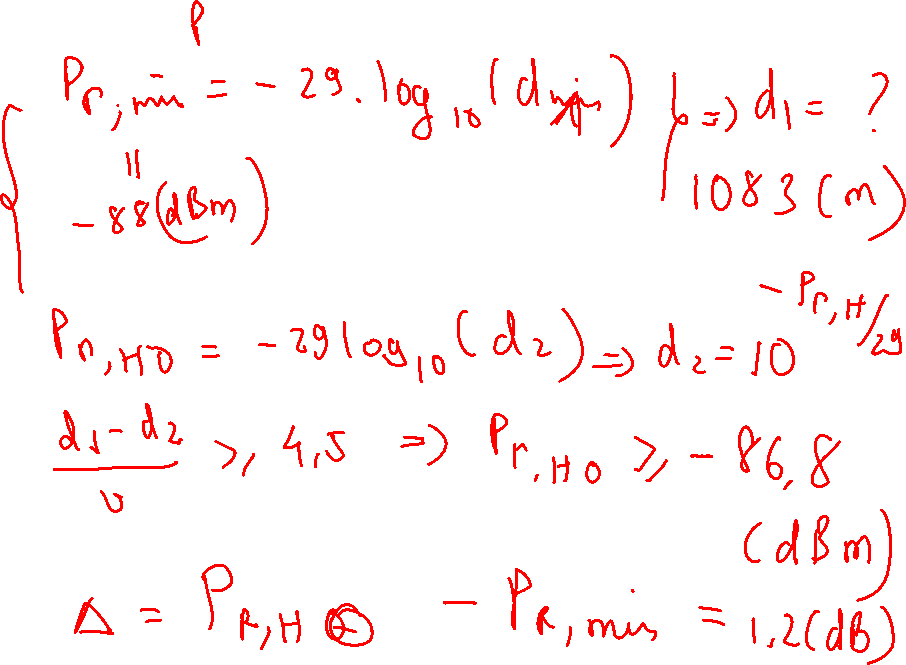 P
P_{r,min} = - 29. log_{10} (d_{min}) } => d_1 = ?
|| 1083 (m)
- 88 (dBm)
P_{r,HO} = - 29 log_{10} (d_2) => d_2 = 10^{- P_{r,H}/29}
\frac{d_1 - d_2}{v} ⩾ 4,5 => P_{r,HO} ⩾ - 86,8
(dBm)
Δ = P_{R,HO} - P_{R,min} = 1,2 (dB)